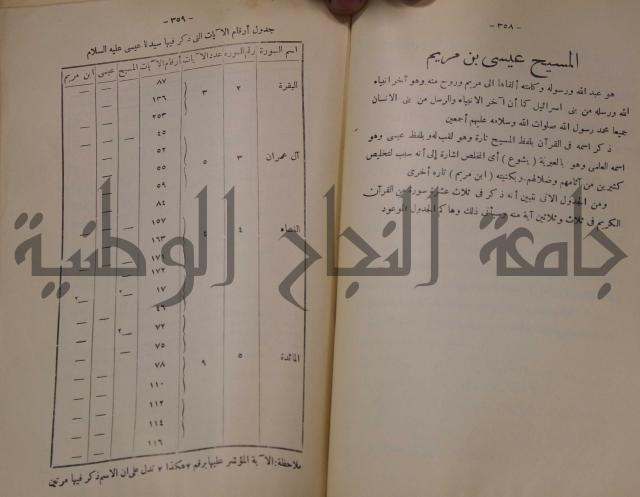 — ٣٥٨ —
المسيح عيسى بن مريم
هو عبد الله ورسوله وكلمته ألقاها الى مريم وروح منه وهو آخر انبياء
الله ورسله من بنى اسرائيل كما أن آخر الانبياء والرسل من بنى الانسان
جميعا محمد رسول الله صلوات الله وسلامه عليهم أجمعين
ذكر اسمه فى القرآن بلفظ المسيح تارة وهو لقب له وبلفظ عيسى وهو
اسمه العلمى وهو بالعبرية ( يشوع ) أى المخلص اشارة إلى أنه سبب لتخليص
كثيرين من آثامهم وضلالهم وبكنيته ( ابن مريم ) تاره أخرى
ومن الجدول الآتى نتبين أنه ذكر فى ثلاث عشرة سورة من القرآن
الكريم فى ثلاث وثلاثين آية منه وسيأتى ذلك وهاكم الجدول الموعود
— ٣٥٩ —
جدول أرقام الآيات التى ذكر فيها سيدنا عيسى عليه السلام
اسم السورة رقم السوره عدد الآيات أرقام الآيات المسيح عيسى ابن مريم
البقرة ٢ ٣ ٨٧ — —
١٣٦ —
٢٥٣ — —
آل عمران ٣ ٥ ٤٥ — — —
٥٢ —
٥٥ —
٥٩ —
٨٤ —
النساء ٤ ٤ ١٥٧ — — —
١٦٣ —
١٧١ — — —
١٧٢ —
المائدة ٥ ٩ ١٧ —٢ —٢
٤٦ — —
٧٢ —٢ —
٧٥ — —
٧٨ — —
١١٠ — —
١١٢ — —
١١٤ — —
١١٦ — —
ملاحظة: الآية المؤشر عليها برقم ٢ هكذا ٢ تدل على ان الاسم ذكر فيها مرتين
جامعة النجاح الوطنية